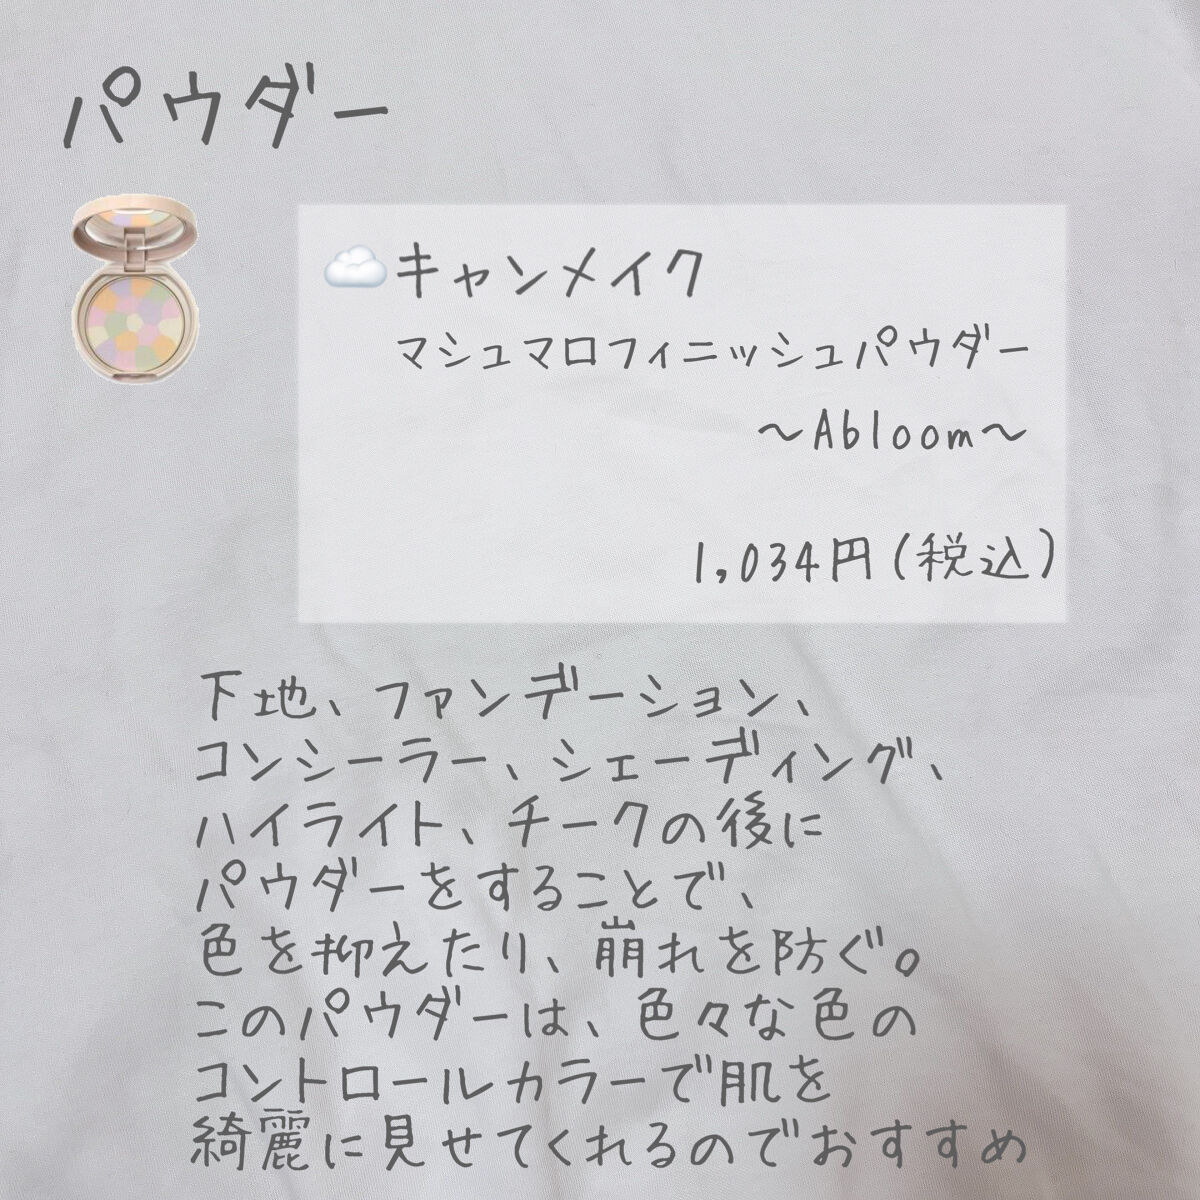 パウダー
キャンメイク
マシュマロフィニッシュパウダー
～Abloom～
1,034円(税込)
下地、ファンデーション、
コンシーラー、シェーディング、
ハイライト、チークの後に
パウダーをすることで、
色を抑えたり、崩れを防ぐ。
このパウダーは、色々な色の
コントロールカラーで肌を
綺麗に見せてくれるのでおすすめ